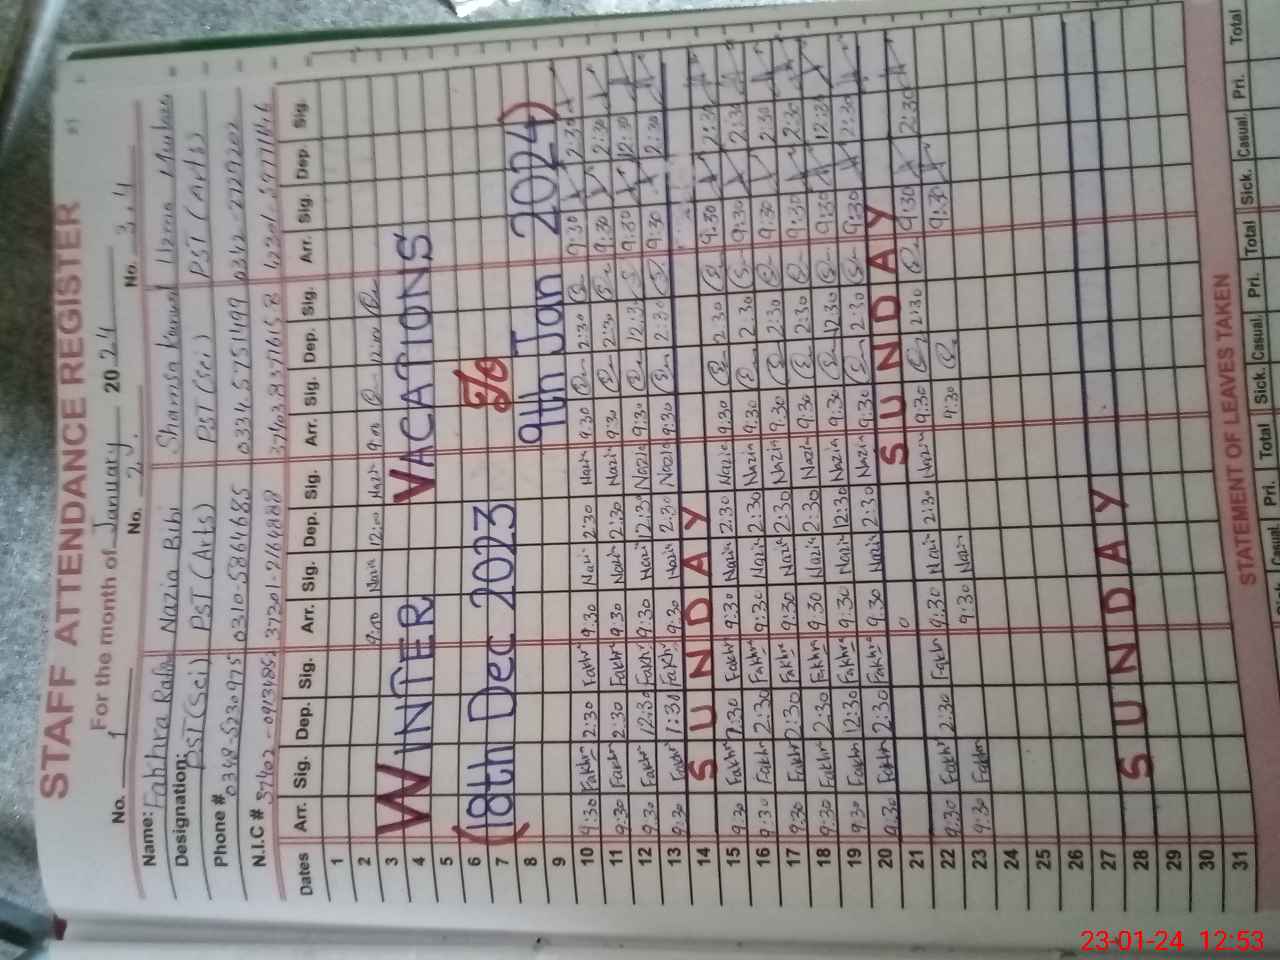 STAFF ATTENDANCE REGISTER
For the month of January 2024
No. 1 No. 2 No. 3
Name: Fakhra Nazia Bibi Shamsa
Designation: PST (Sci) PST (Arts) PST (Sci) PST (Arts)
Phone # 0348-5230975 0310-5864685 0334 5751499
N.I.C #
Dates Arr. Sig. Dep. Sig. Arr. Sig. Dep. Sig. Arr. Sig. Dep. Sig. Arr. Sig. Dep. Sig.
1
2 9:00 Nazia 12:00 Nazi 9:00 12:00
3
4 WINTER VACATIONS
5
6
7 (18th Dec 2023 To 9th Jan 2024)
8
9
10 9:30 Fakhr 2:30 Fakhr 9:30 Nazia 2:30 Nazia 9:30 2:30 9:30 2:30
11 9:30 Fakhr 2:30 Fakhr 9:30 Nazia 2:30 Nazia 9:30 2:30 9:30 2:30
12 9:30 Fakhr 12:30 Fakhr 9:30 Nazia 12:30 Nazia 9:30 12:30 9:30 12:30
13 9:30 Fakhr 1:30 Fakhr 9:30 Nazia 2:30 Nazia 9:30 2:30 9:30 2:30
14 SUNDAY
15 9:30 Fakhr 2:30 Fakhr 9:30 Nazia 2:30 Nazia 9:30 2:30 9:30 2:30
16 9:30 Fakhr 2:30 Fakhr 9:30 Nazia 2:30 Nazia 9:30 2:30 9:30 2:30
17 9:30 Fakhr 2:30 Fakhr 9:30 Nazia 2:30 Nazia 9:30 2:30 9:30 2:30
18 9:30 Fakhr 2:30 Fakhr 9:30 Nazia 2:30 Nazia 9:30 2:30 9:30 2:30
19 9:30 Fakhr 12:30 Fakhr 9:30 Nazia 12:30 Nazia 9:30 12:30 9:30 12:30
20 9:30 Fakhr 2:30 Fakhr 9:30 Nazia 2:30 Nazia 9:30 2:30 9:30 2:30
21 SUNDAY
22 9:30 Fakhr 2:30 Fakhr 9:30 Nazia 2:30 Nazia 9:30 2:30 9:30 2:30
23 9:30 Fakhr 9:30 Nazia 9:30 9:30
24
25
26
27
28 SUNDAY
29
30
31
STATEMENT OF LEAVES TAKEN
Casual Pri. Total Sick. Casual. Pri. Total Sick. Casual. Pri. Total
23-01-24 12:53